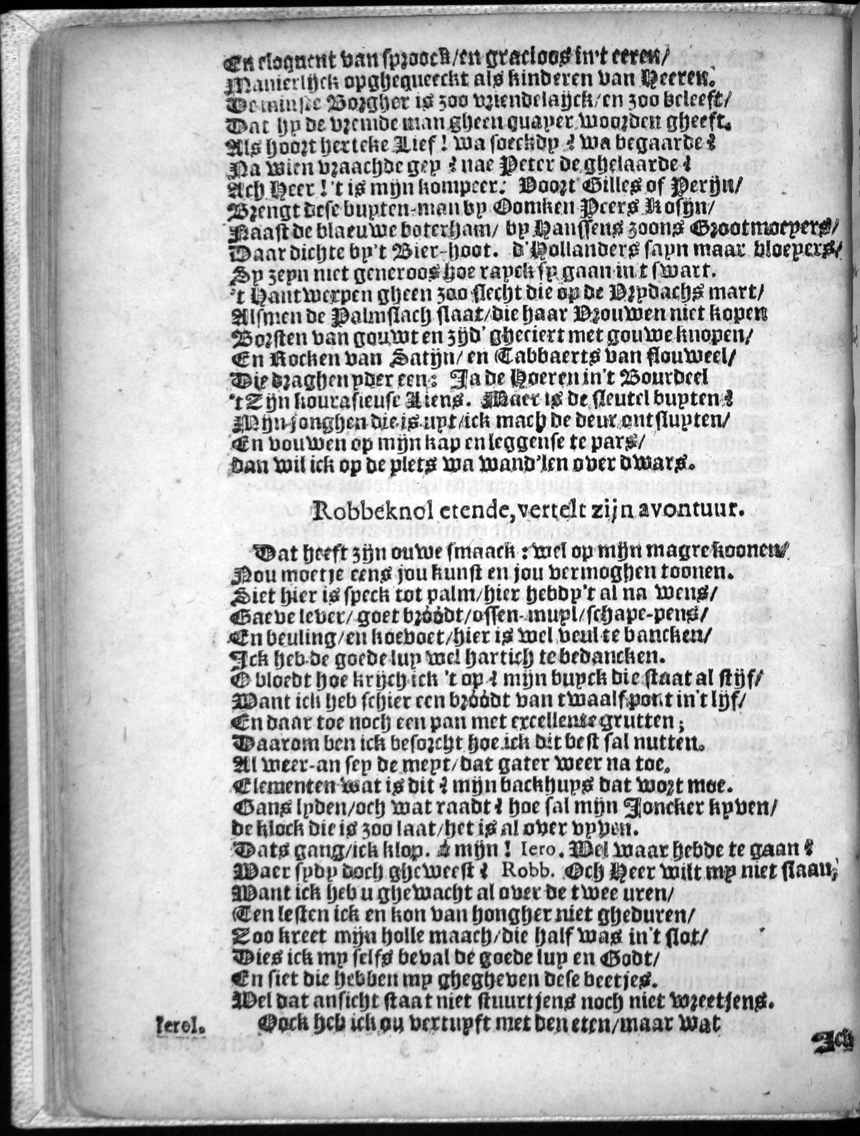 En eloquent van sproock/en gracioos in't eeren/
Manierlijck opghequeeckt als kinderen van Heeren.
De minste Borgher is zoo vriendelayck/en zoo beleeft/
Dat hy de vremde man gheen quayer woorden gheeft.
Als hoort herteke Lief! wa soeckdy? wa begaarde?
Na wien vraachde gey? nae Peter de ghelaarde?
Ach Heer! 't is mijn kompeer: Voort Gilles of Peryn/
Brengt dese buyten-man by Oomken Peers Kosyn/
Naast de blaeuwe boterham/ by Hanssens zoons Grootmoeyers/
Daar dichte by't Bier-hoot. d'Hollanders sayn maar bloeyers/
Sy zeyn niet generoos hoe rayck sy gaan in't swart.
't Hantwerpen gheen zoo slecht die op de Vrydachs mart/
Alsmen de Palmslach slaat/die haar Vrouwen niet kopen
Borsten van gouwt en zijd' gheciert met gouwe knopen/
En Rocken van Satijn/ en Tabbaerts van flouweel/
Die draghen yder een: Ja de Hoeren in't Bourdeel
't Zijn kourasieuse Liens. Maer is de sleutel buyten?
Mijn jonghen die is uyt/ick mach de deur ontsluyten/
En vouwen op mijn kap en leggense te pars/
dan wil ick op de plets wa wand'len over dwars.
Robbeknol etende, vertelt zijn avontuur.
Dat heeft zijn ouwe smaack: wel op mijn magre koonen/
Nou moet je eens jou kunst en jou vermoghen toonen.
Siet hier is speck tot palm/hier hebdy't al na wens/
Gaeve lever/ goet bróódt/ossen-muyl/schape-pens/
En beuling/en koevoet/hier is wel veul te bancken/
Ick heb de goede luy wel hartich te bedancken.
O bloedt hoe krijch ick 't op? mijn buyck die staat al stijf/
Want ick heb schier een bróódt van twaalf pont in't lijf/
En daar toe noch een pan met excellente grutten;
Daarom ben ick besorcht hoe ick dit best sal nutten.
Al weer-an sey de meyt/dat gater weer na toe.
Elementen wat is dit? mijn backhuys dat wort moe.
Gans lyden/och wat raadt? hoe sal mijn Joncker kyven/
de klock die is zoo laat/het is al over vyven.
Dats gang/ick klop. A mijn! Iero. Wel waar hebde te gaan?
Waer sydy doch gheweest? Robb. Och Heer wilt my niet slaan,
Want ick heb u ghewacht al over de twee uren/
Ten lesten ick en kon van hongher niet gheduren/
Zoo kreet mijn holle maach/die half was in't slot/
Dies ick my selfs beval de goede luy en Godt/
En siet die hebben my ghegheven dese beetjes.
Wel dat ansicht staat niet stuurtjens noch niet wreetjens.
Ierol. Oock heb ick ou vertuyft met den eten/maar wat
Ick